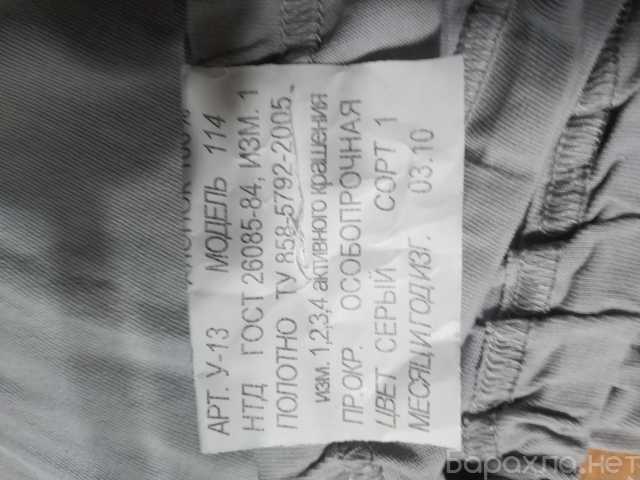 ХЛОПОК 100%
АРТ. У-13 МОДЕЛЬ 114
НТД ГОСТ 26085-84, ИЗМ. 1
ПОЛОТНО ТУ 858-5792-2005
изм. 1,2,3,4 активного крашения
ПР.ОКР. ОСОБОПРОЧНАЯ
ЦВЕТ СЕРЫЙ СОРТ 1
МЕСЯЦ И ГОД ИЗГ. 03.10
Барахла.нет